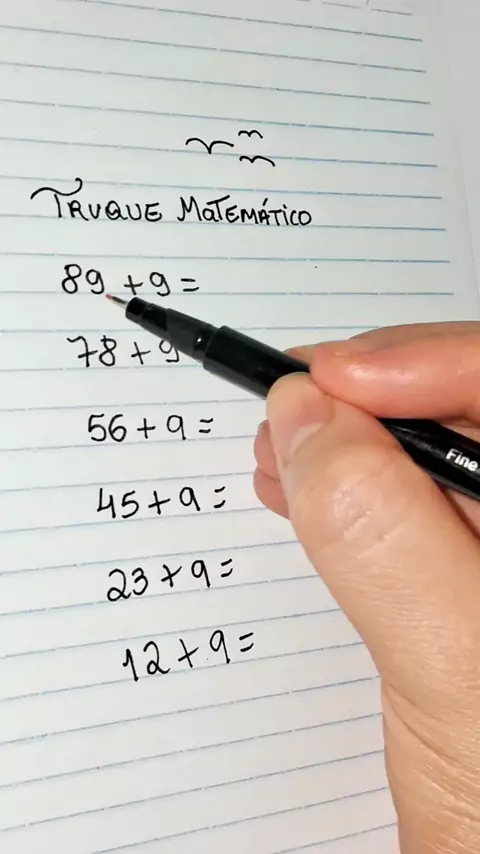 TRUQUE MATEMÁTICO
89 + 9 =
78 + 9
56 + 9 =
45 + 9 =
23 + 9 =
12 + 9 =
Fine